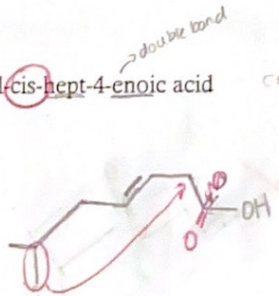 double bond
-cis-hept-4-enoic acid
OH
O